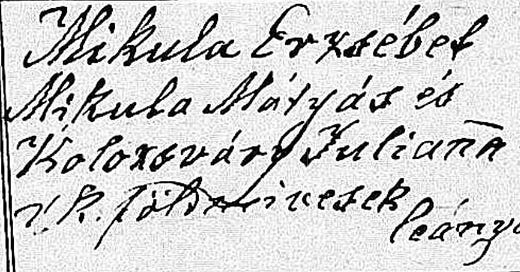 Mikula Erzsébet
Mikula Mátyás és
Kolozsváry Julianna
r. k. földmivesek
leánya